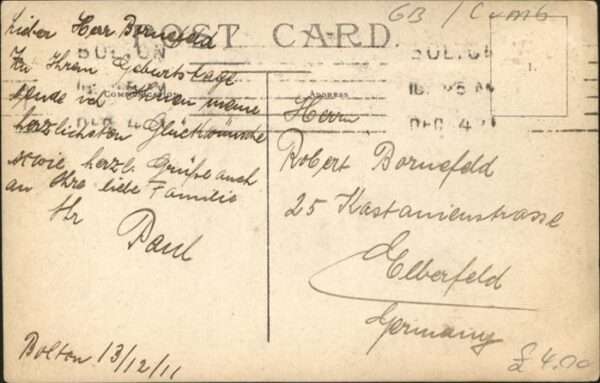 GB / Cumb
POST CARD.
Lieber Herr Bornefeld
Zu Ihrem Geburtstage
sende ich Ihnen meine
herzlichsten Glückwünsche
sowie herzl. Grüße auch
an Ihre liebe Familie
Ihr
Paul
Bolton 13/12/11
BOLTON
DEC 4
Communication
Address
BOLTON
DEC 4
Herrn
Robert Bornefeld
25 Kastanienstrasse
Elberfeld
Germany
£ 4.00